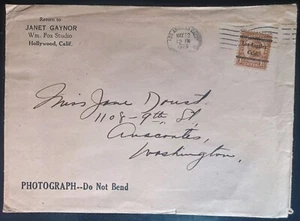 Return to
JANET GAYNOR
Wm. Fox Studio
Hollywood, Calif.
Los Angeles
Calif.
Miss Jane Doust
1108-9th St,
Anacortes,
Washington.
PHOTOGRAPH--Do Not Bend